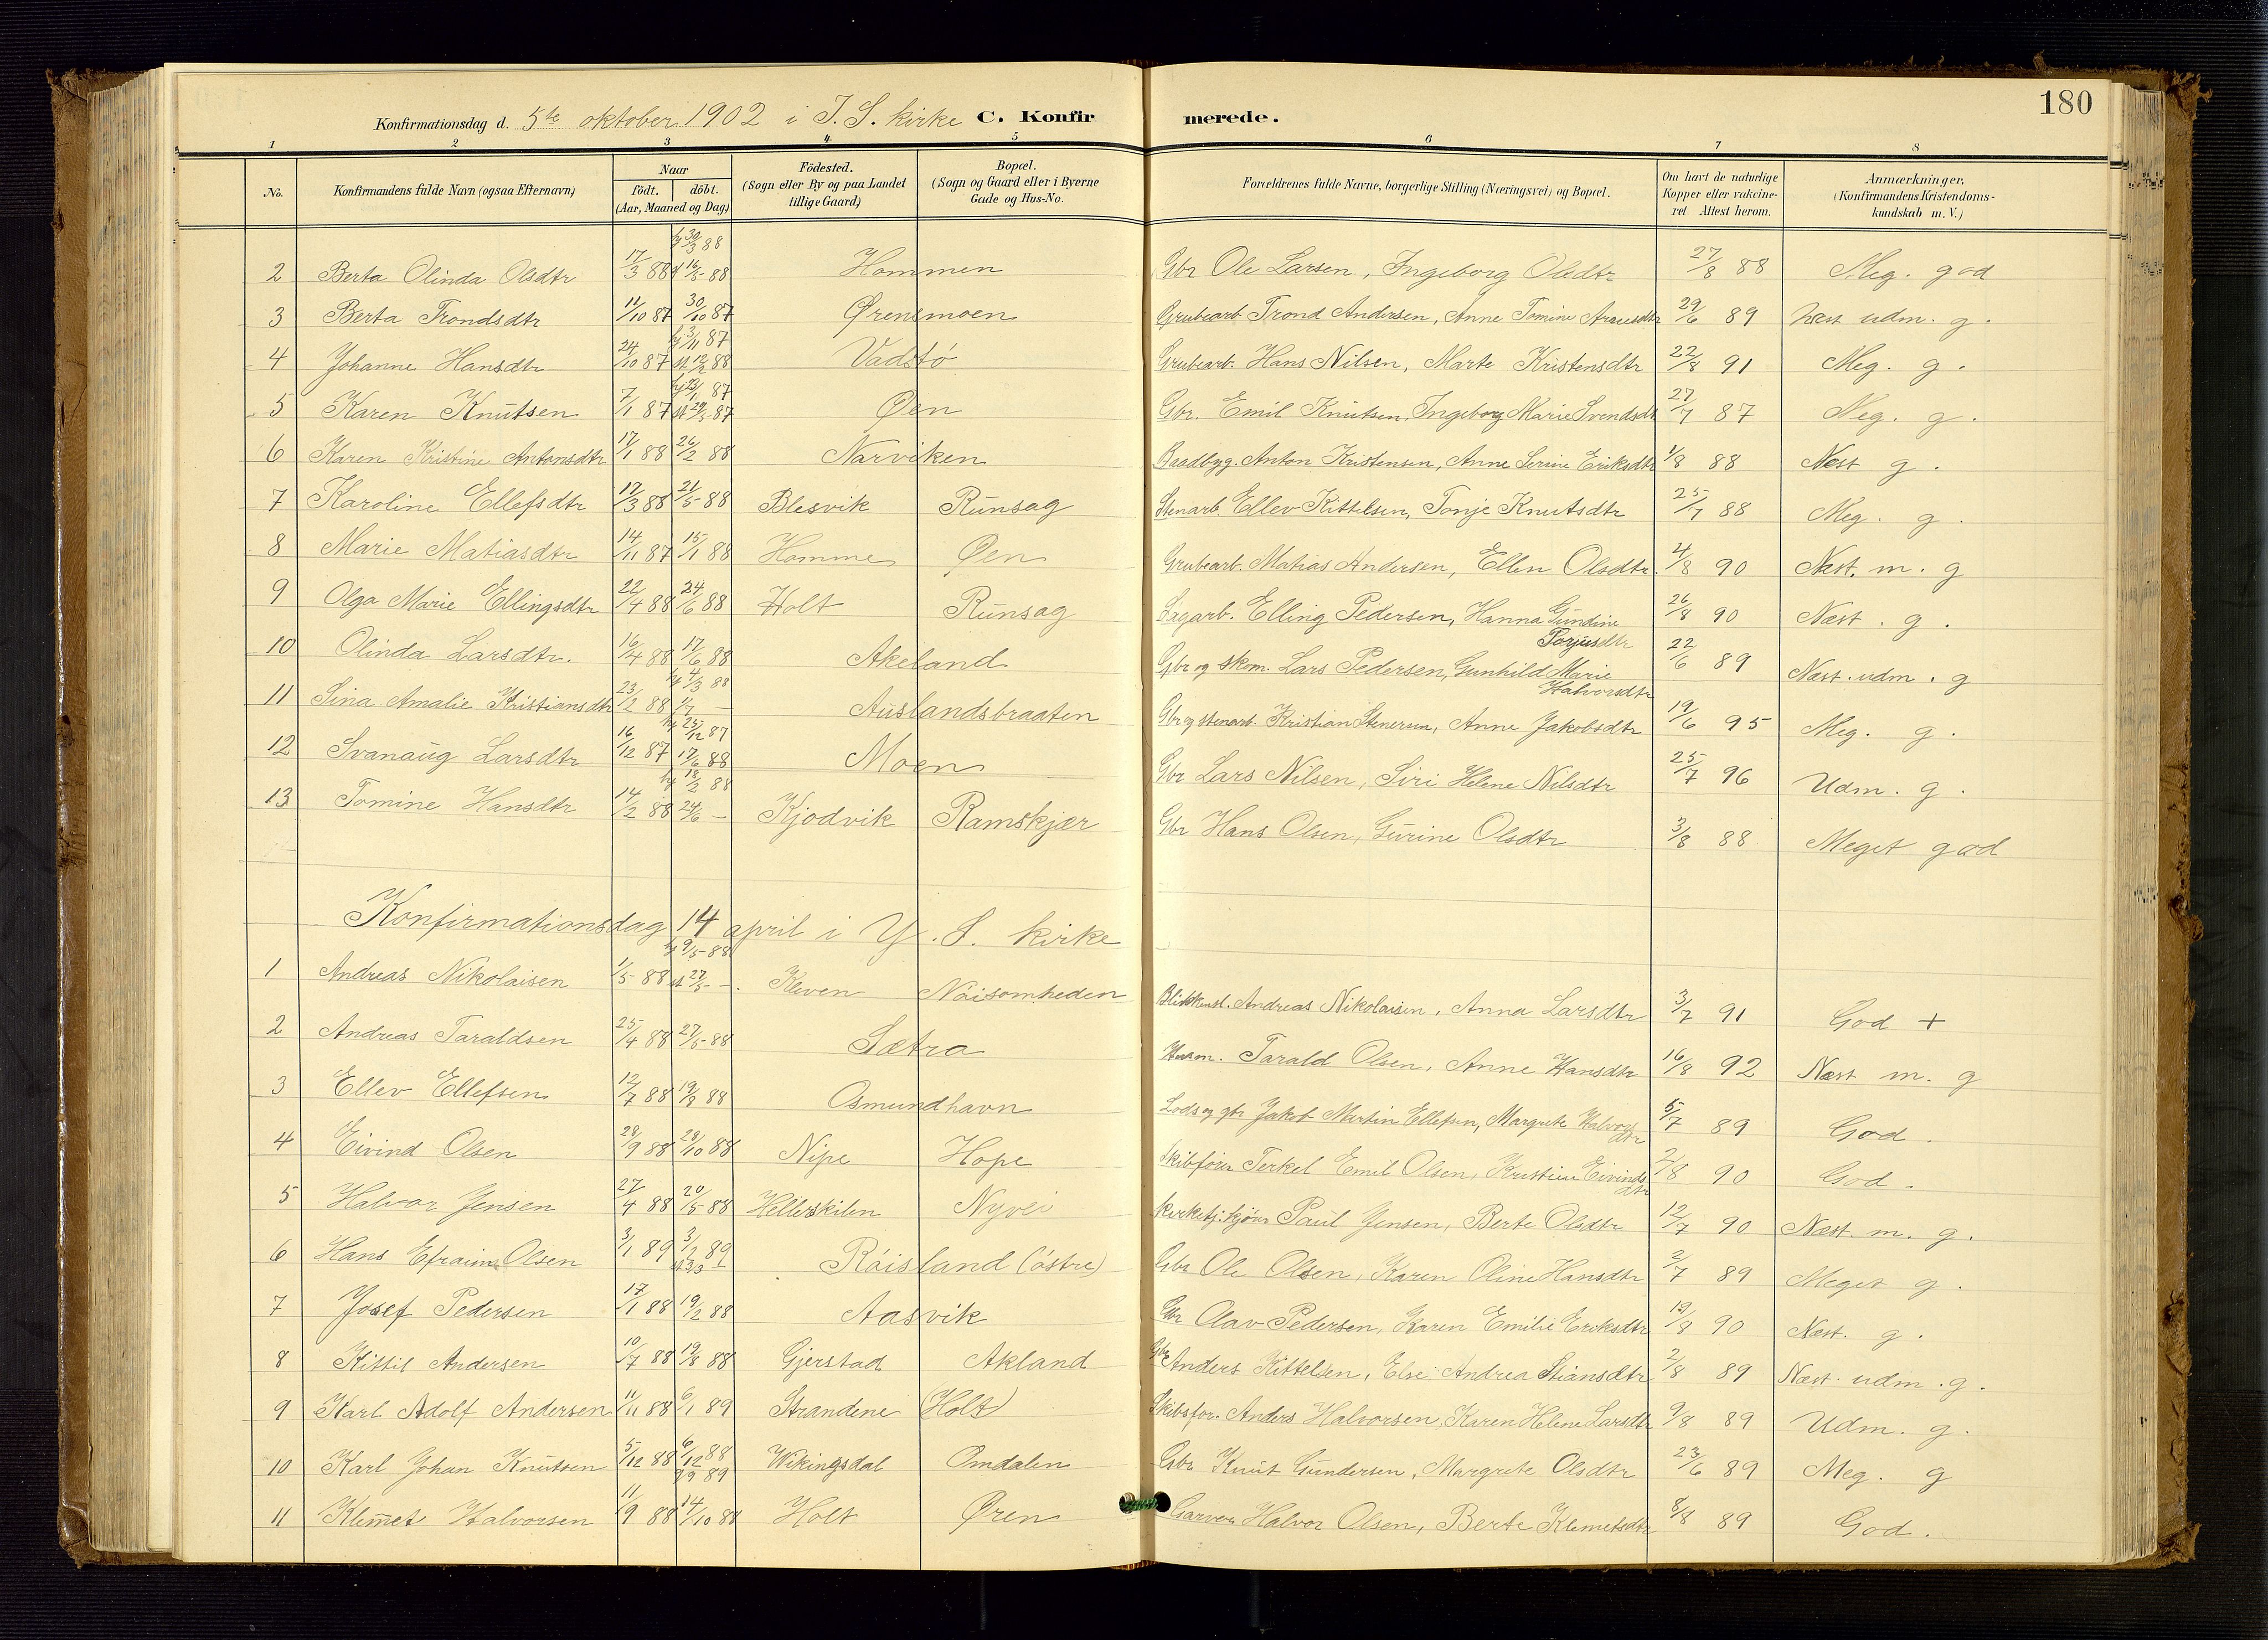 180
Konfirmationsdag d. 5te oktober 1902 i I. S. kirke C. Konfirmerede.
1 2 3 4 5 6 7 8
No. Konfirmandens fulde Navn (ogsaa Efternavn) Naar födt. döbt. (Aar, Maaned og Dag) Födested. (Sogn eller By og paa Landet tillige Gaard) Bopæl. (Sogn og Gaard eller i Byerne Gade og Hus-No. Forældrenes fulde Navne, borgerlige Stilling (Næringsvei) og Bopæl. Om havt de naturlige Kopper eller vakcineret. Attest herom. Anmærkninger. (Konfirmandens Kristendomskundskab m. V.)
2 Berta Olinda Olsdtr 17/3 88 hj 30/3 88 16/5 88 Hommen Gbr Ole Larsen, Ingeborg Olsdtr 27/8 88 Meg. god
3 Berta Trondsdtr 11/10 87 30/10 87 Ørensmoen Grubearb. Trond Andersen, Anne Tomine 29/6 89 Næst udm. g.
4 Johanne Hansdtr 24/10 87 hj 3/11 87 st 12/2 88 Vadstö Grubearb. Hans Nilsen, Marte Kristensdtr 22/8 91 Meg. g.
5 Karen Knutsen 7/1 87 hj 23/1 87 st 29/5 87 Øen Gbr. Emil Knutsen, Ingeborg Marie Svendsdtr 27/7 87 Meg. g.
6 Karen Kristine Antonsdtr 17/1 88 26/2 88 Narviken Baadbyg. Anton Kristensen, Anne Serine Eriksdtr 1/8 88 Næst g.
7 Karoline Ellefsdtr 17/3 88 21/5 88 Blesvik Runsag Stenarb. Ellev Kittelsen, Tonje Knutsdtr 25/7 88 Meg. g.
8 Marie Matiasdtr 14/11 87 15/1 88 Homme Øen Grubearb. Matias Andersen, Ellen Olsdtr. 4/8 90 Næst. m. g
9 Olga Marie Ellingsdtr 22/4 88 24/6 88 Holt Runsag Sagarb. Elling Pedersen, Hanna Gundine Torjusdtr 26/8 90 Næst. g.
10 Olinda Larsdtr. 16/4 88 17/6 88 Akeland Gbr og skom. Lars Pedersen, Gunhild Marie Halvorsdtr 22/6 89 Næst. udm. g
11 Sina Amalie Kristiansdtr 23/2 88 hj 4/3 88 1/7 - Auslandsbraaten Gbr og stenarb. Kristian Stenersen, Anne Jakobsdtr 19/6 95 Meg. g.
12 Svanaug Larsdtr 16/12 87 hj 25/12 87 17/6 88 Moen Gbr Lars Nilsen, Siri Helene Nilsdtr 25/7 96 Udm. g.
13 Tomine Hansdtr 14/2 88 hj 18/2 88 24/6 - Kjodvik Ramskjær Gbr Hans Olsen, Gurine Olsdtr 3/8 88 Meget god
Konfirmationsdag 14 april i Y. S. kirke
1 Andreas Nikolaisen 1/5 88 hj 9/5 88 st 27/5 - Kleven Nöisomheden Andreas Nikolaisen, Anna Larsdtr 3/7 91 God +
2 Andreas Taraldsen 25/4 88 27/5 88 Sætra Husm. Tarald Olsen, Anne Hansdtr 16/8 92 Næst m. g
3 Ellev Ellefsen 12/7 88 19/8 88 Osmundhavn Lods og gbr Jakob Martin Ellefsen, Margrete Halvorsdtr 5/7 89 God.
4 Eivind Olsen 28/9 88 28/10 88 Nipe Hope Skibsfører Terkel Emil Olsen, Kristine Eivindsdtr 2/8 90 God.
5 Halvor Jensen 27/4 88 20/5 88 Hellerskilen Nyvei Kirketj. Paul Jensen, Berte Olsdtr 12/7 90 Næst. m. g.
6 Hans Efraim Olsen 3/1 89 3/2 89 Röisland (östre) Gbr Ole Olsen, Karen Oline Hansdtr 2/7 89 Meget g.
7 Josef Pedersen 17/1 88 19/2 88 Aasvik Gbr Olav Pedersen, Karen Emilie Eriksdtr 12/8 90 Næst. g.
8 Kittil Andersen 10/7 88 19/8 88 Gjerstad Akland Gbr Anders Kittelsen, Else Andrea Stiansdtr 2/8 89 Næst. udm. g.
9 Karl Adolf Andersen 11/11 88 6/1 89 Strandene (Holt) Skibsfør. Anders Halvorsen, Karen Helene Larsdtr 9/8 89 Udm. g.
10 Karl Johan Knutsen 5/12 88 6/12 88 Wikingsdal Omdalen Gbr Knut Gundersen, Margrete Olsdtr 23/6 89 Meg. g
11 Klemet Halvorsen 11/9 88 14/10 88 Holt Øren Garver Halvor Olsen, Berte Klemetsdtr 8/8 89 God.